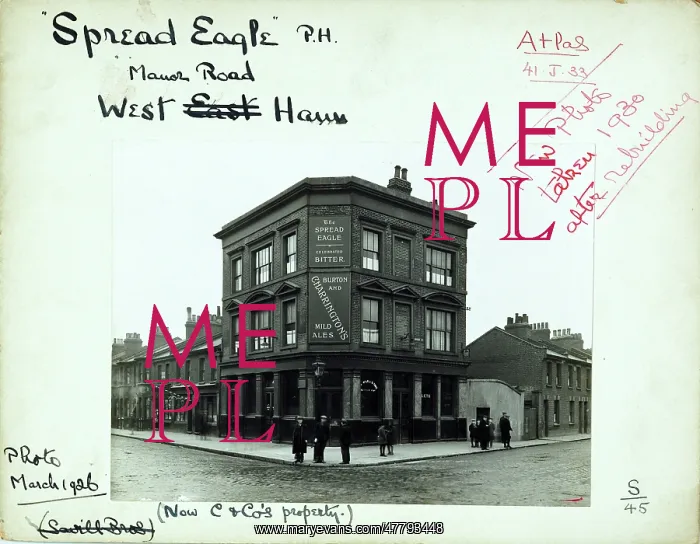 "Spread Eagle" P.H.
Manor Road
West East Ham
Atlas
41 J. 33
New Photo
taken 1930
after Rebuilding
ME
PL
The
SPREAD
EAGLE
BITTER.
BURTON
AND
CHARRINGTON'S
MILD
ALES
ME
PL
Photo
March 1926
(Savill Bros)
(Now C & Co's property.)
S
45
www.maryevans.com/47793448